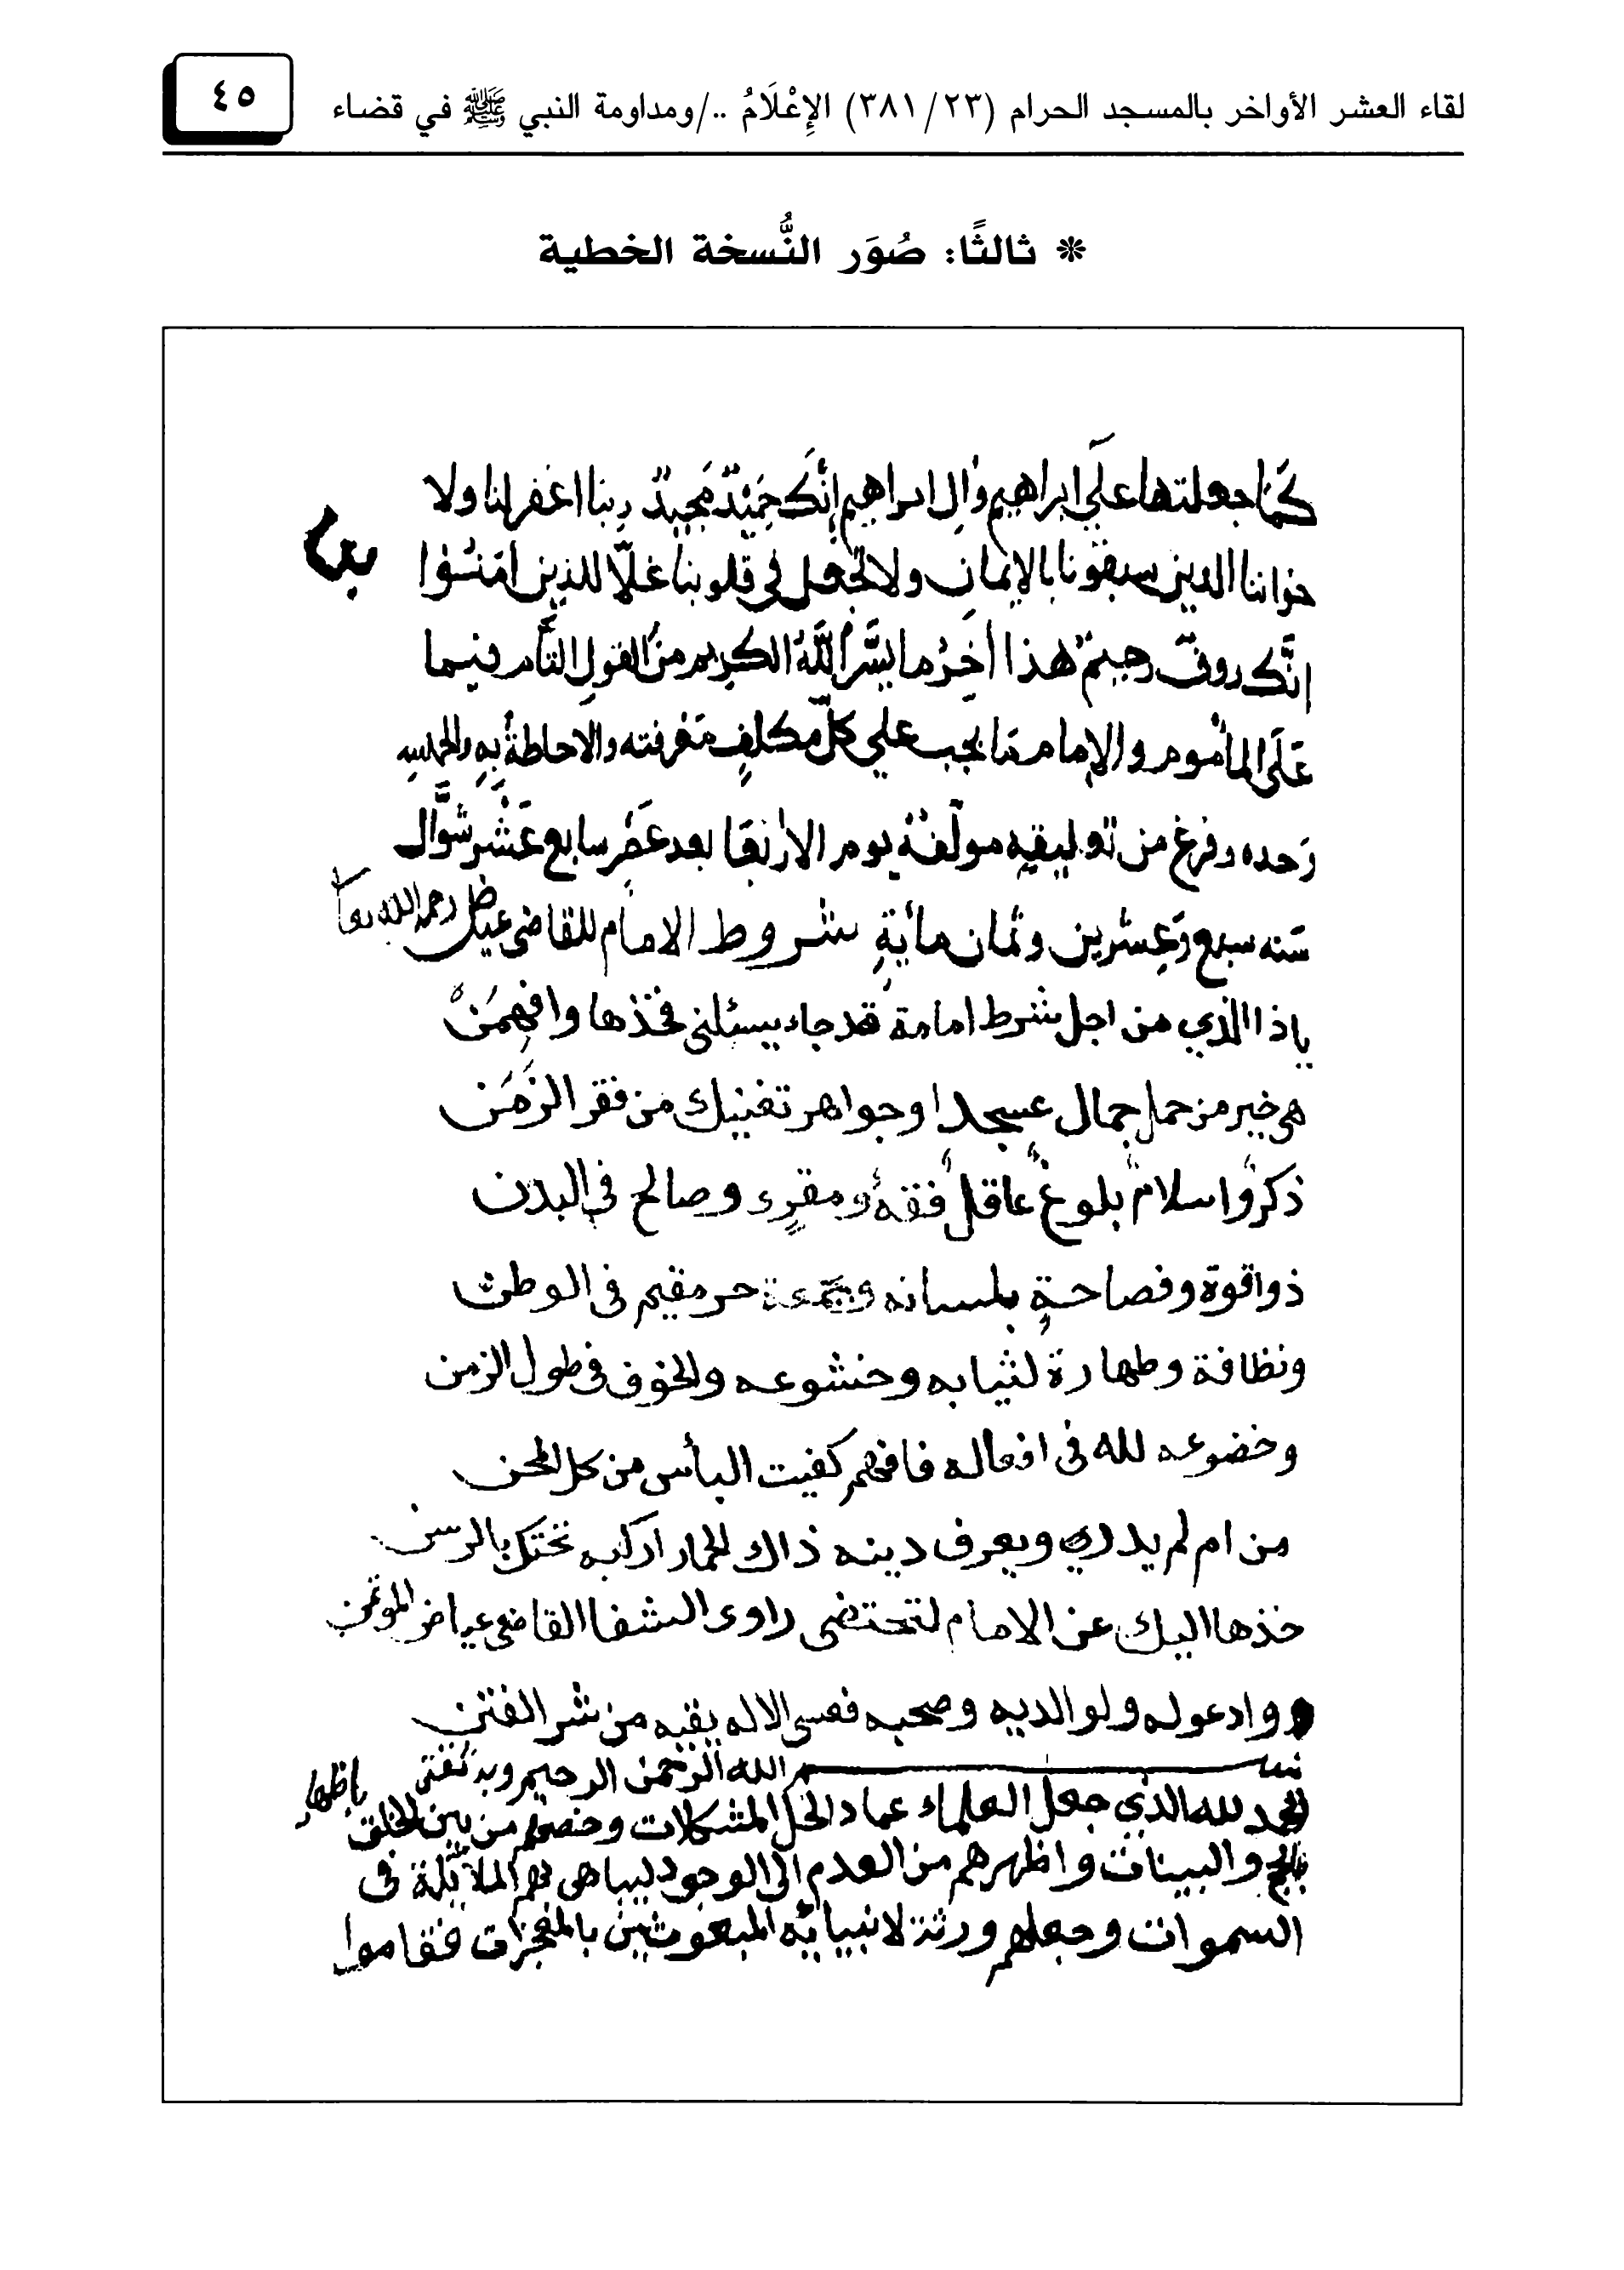 لقاء العشر الأواخر بالمسجد الحرام (٣٨١/٢٣) الإِعْلَامُ ../ومداومة النبي ﷺ في قضاء
٤٥
* ثالثًا: صُوَر النُّسخة الخطية
كَمَا جعلتها عَلَى ابراهيم وال ابراهيم إنَّكَ حَمِيْدٌ مَجيدٌ ربنا اغفر لنا ولا
خواننا الذين سبقونا بالإيمان ولا تجعل في قلوبنا غلّا للذين امَنُوا
انَّكَ روفٌ رحيمٌ هذا آخِرُ ما يسَّر اللَّهُ الكريم منَ القولِ التَّام فيما
عَلَى المأموم والإمام مما يجب علي كلّ مكلفٍ مَعْرفته والاحاطةُ بِهِ والحمدلله
وَحده وفرغ من تعليقه مولّفهُ يوم الاربعَا بعد عَصْر سابع عَشَر شوَّال
سَنه سبع وَعِشرين وثمان مائةِ شروط الامام للقاضي عياض رحمه الله تعا
ياذا الذي من اجل شرط امامة قد جاء يسئلني فخذها وافهمَنْ
هي خير من حمل جمال عسجدا وجواهر تغنيك من فقر الزَمَن
ذكرٌ واسلامٌ بلوغٌ عاقلٌ فقهٌ ومقرِء وصالح في البدن
ذوا قوة وفصاحةٍ بلسانه حر مقيم في الوطن
ونظافة وطهارة لثيابه وخشوعه والخوف في طول الزمن
وخضوعه لله في افعاله فافهم كفيت البأس من كل المحن
من ام لم يدري ويعرف دينه ذاك الحمار اركبه تحتك بالرسن
خذها اليك عن الامام لتحتضى راوى الشفا القاضي عياض الموتمن
وادعو له ولوالديه وصحبه فعسى الاله يقيه من شر الفتن
بسم الله الرحمن الرحيم وبه ثقتي
الحمد لله الذي جعل العلماء عمادا لحل المشكلات وخصهم من بين الخلق باظهار
الحجج والبينات واظهرهم من العدم الى الوجود ليباهى بهم الملائكة في
السموات وجعلهم ورثة لانبيائه المبعوثين بالمعجزات فقاموا